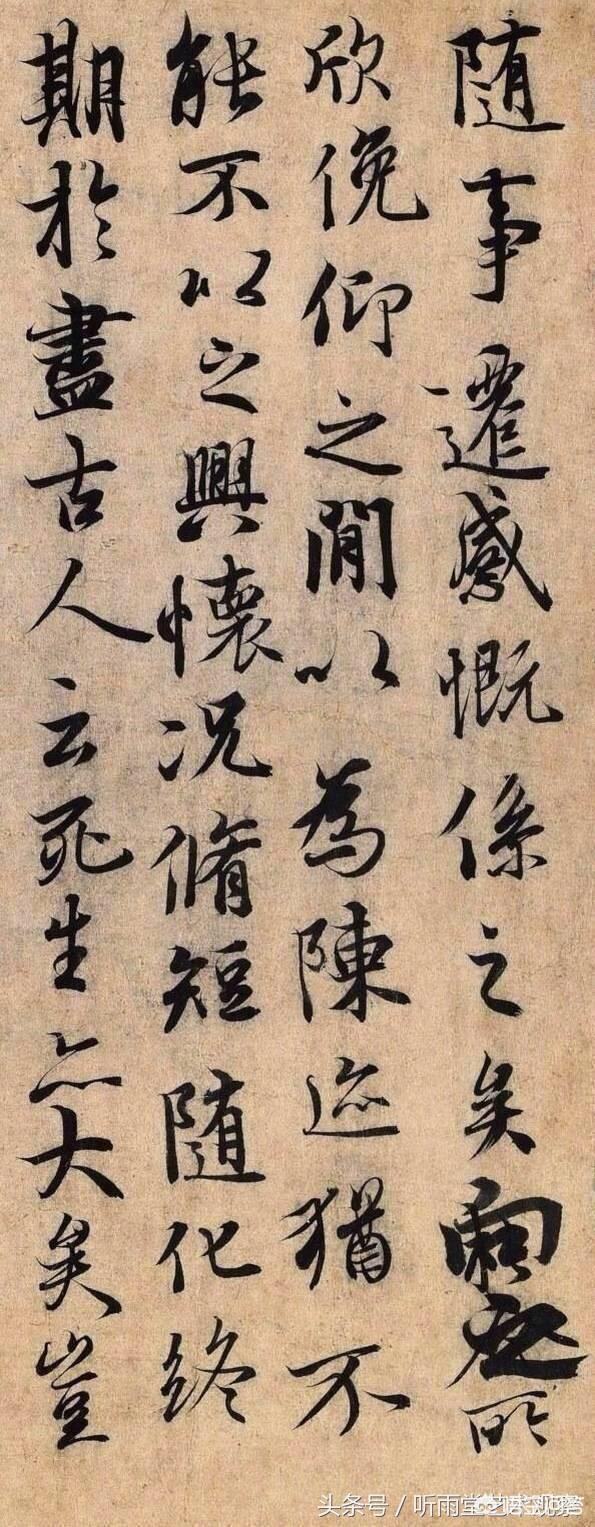 随事遷感慨係之矣向之所
欣俛仰之閒以為陳迹猶不
能不以之興懷况脩短随化終
期於盡古人云死生亦大矣豈
头条号／听雨堂艺术观察